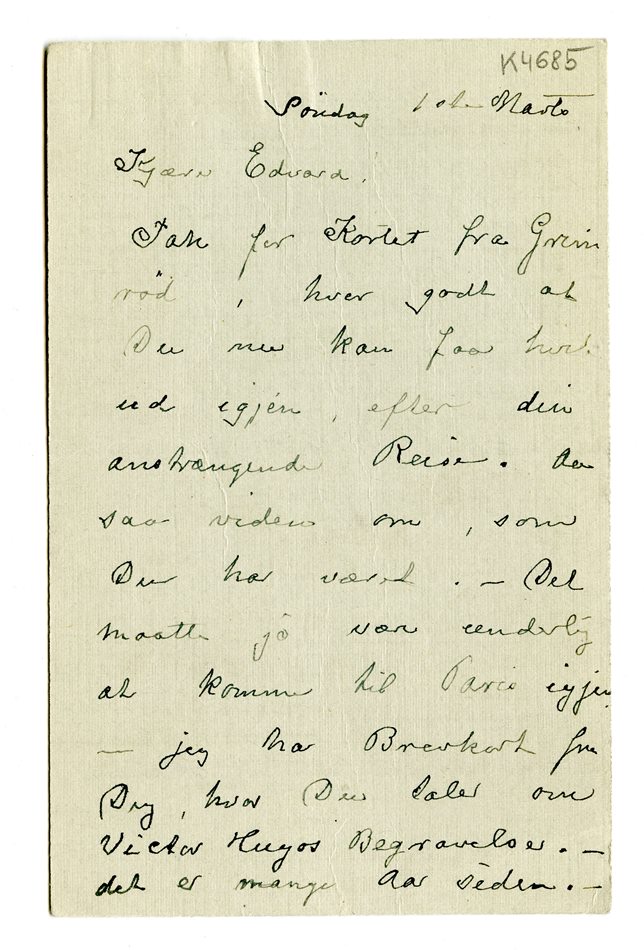 K4685
Söndag 1ste Marts
Kjære Edvard!
Tak for Kortet fra Grim
röd, hvor godt at
Du nu kan faa hvile
ud igjen, efter din
anstrængende Reise. Aa
saa viden om, som
Du har været. – Det
maatte jo være underlig
at komme til Paris igjen
– jeg har Brevkort fra
Dig, hvor Du taler om
Victor Hugos Begravelse. –
det er mange Aar siden. –